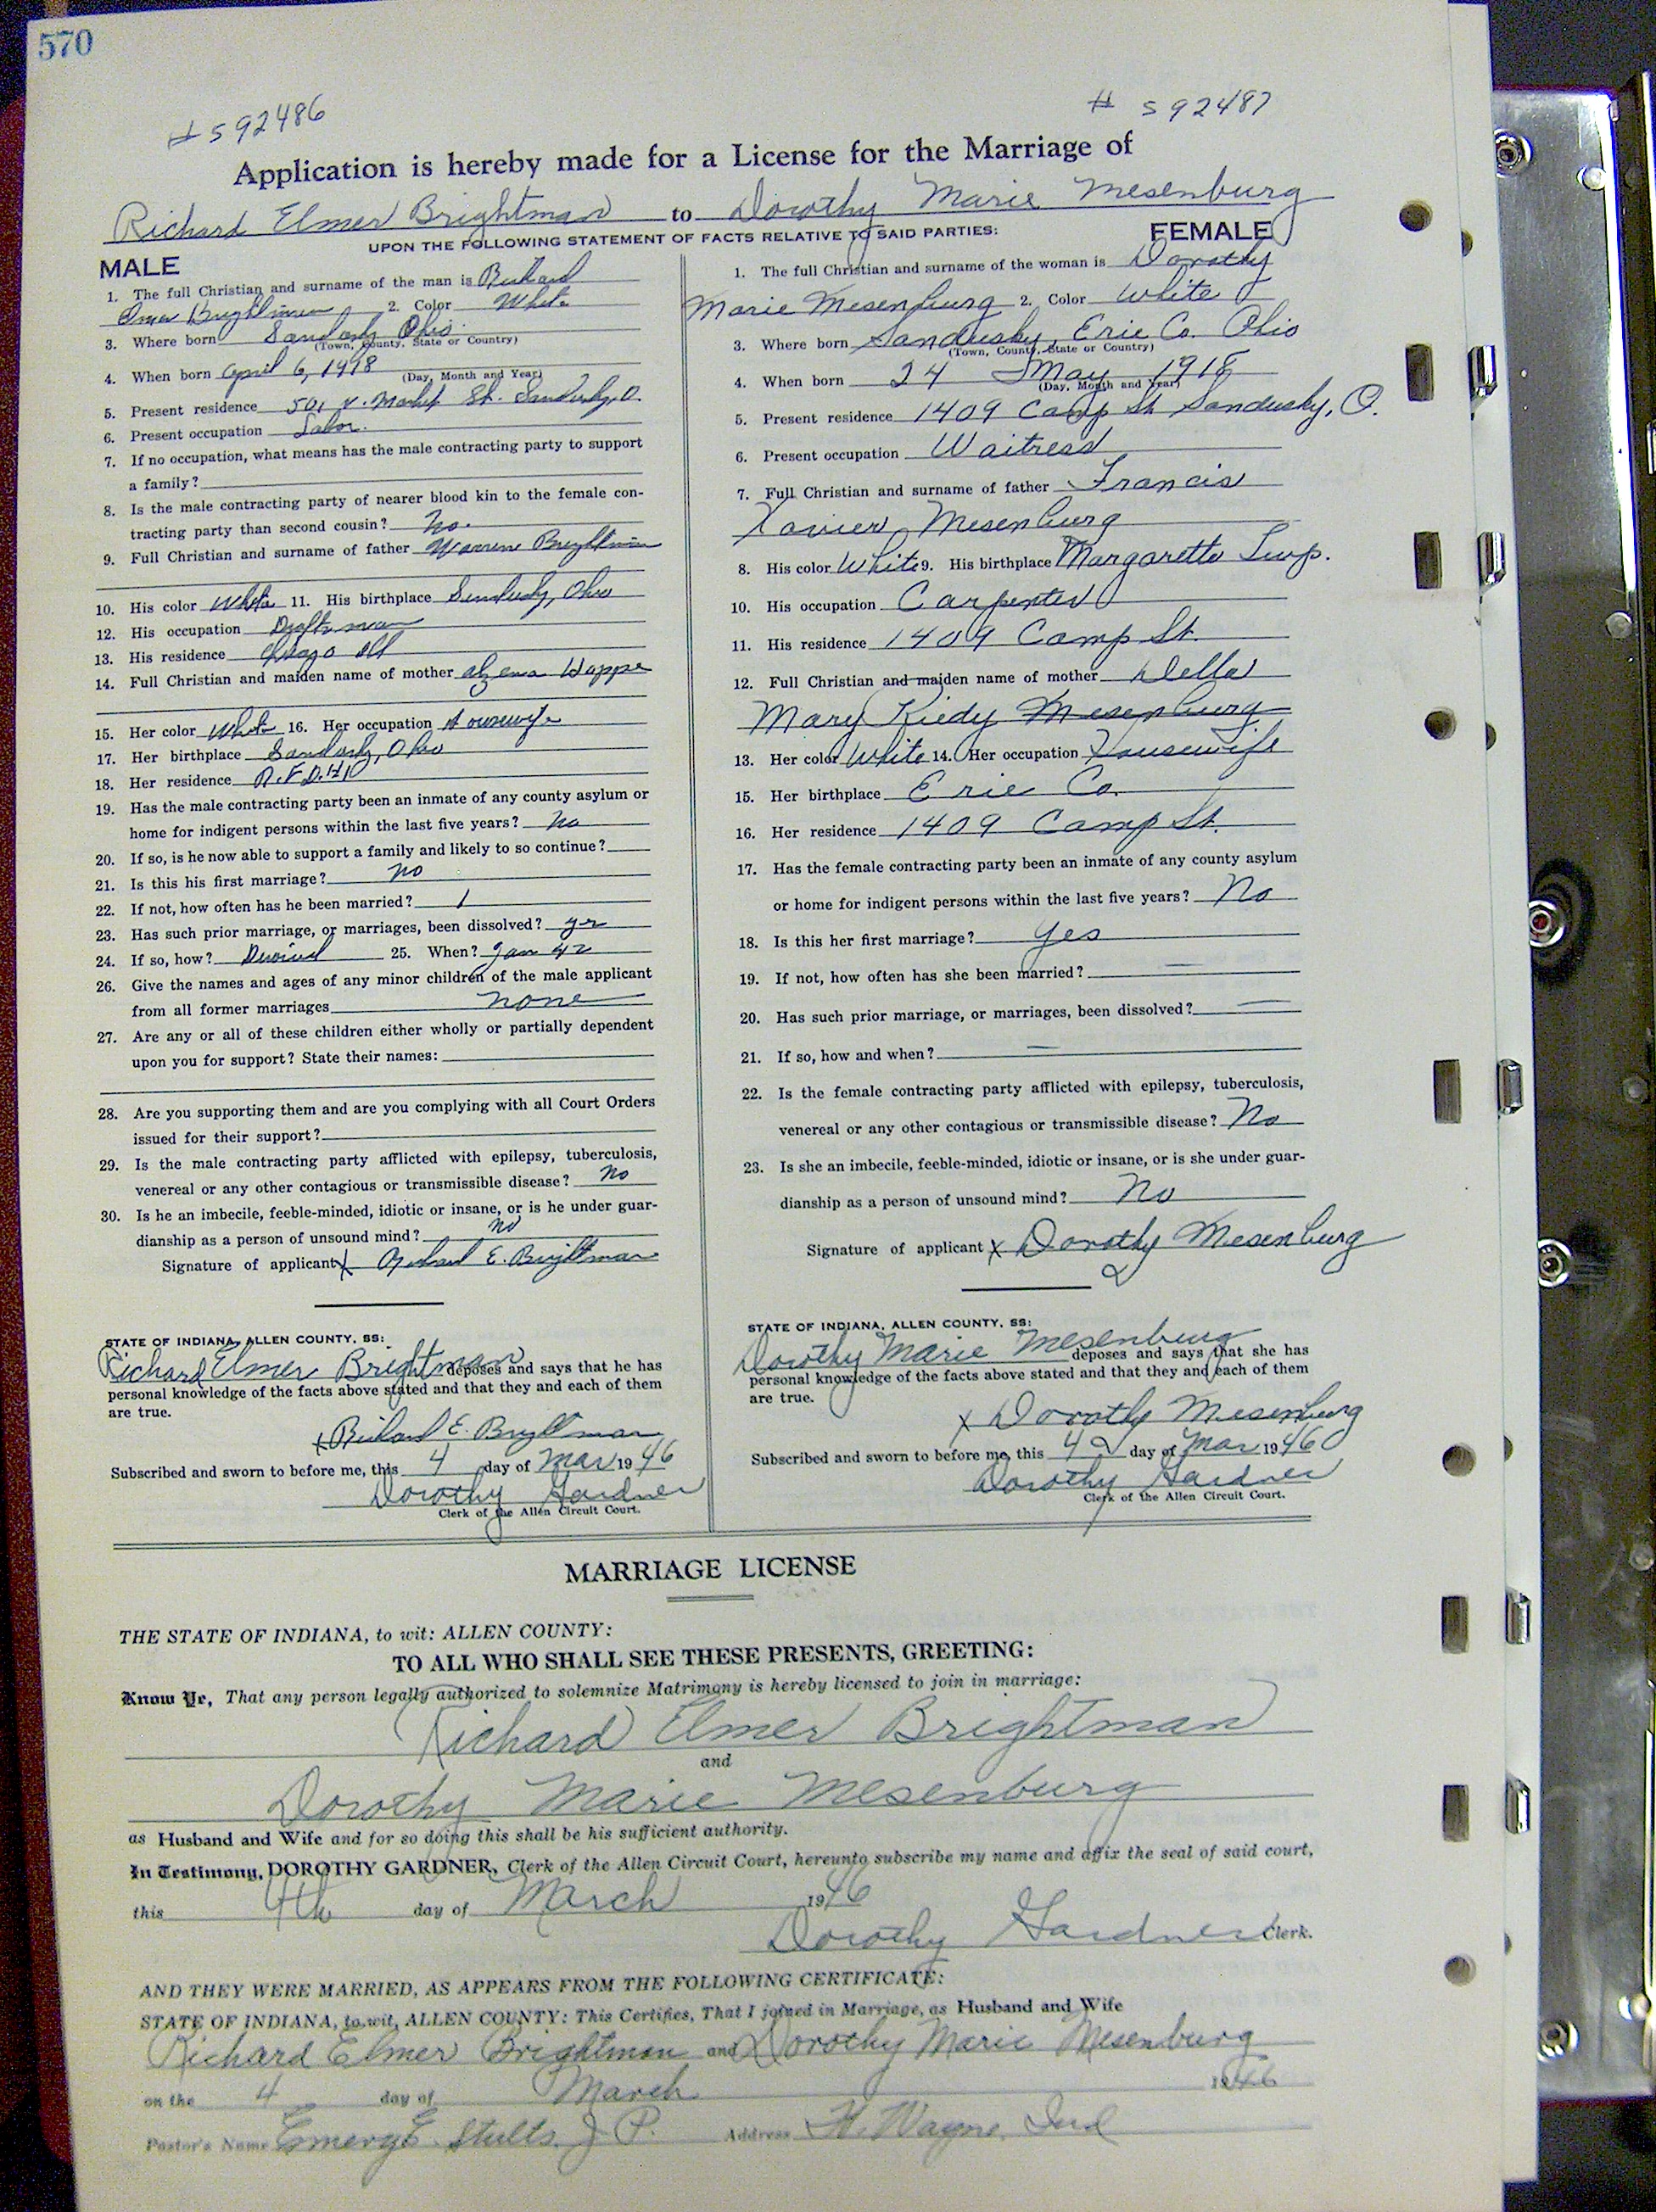 570
# 592486
# 592487
Application is hereby made for a License for the Marriage of
Richard Elmer Brightman to Dorothy Marie Mesenburg
UPON THE FOLLOWING STATEMENT OF FACTS RELATIVE TO SAID PARTIES:
MALE
1. The full Christian and surname of the man is Richard
Elmer Brightman 2. Color White
3. Where born Sandusky Ohio.
(Town, County, State or Country)
4. When born April 6, 1918
(Day, Month and Year)
5. Present residence 501 W. Market St. Sandusky, O.
6. Present occupation Labor.
7. If no occupation, what means has the male contracting party to support
a family?
8. Is the male contracting party of nearer blood kin to the female con-
tracting party than second cousin? No.
9. Full Christian and surname of father Warren Brightman
10. His color White 11. His birthplace Sandusky, Ohio
12. His occupation Draftsman
13. His residence Chicago Ill
14. Full Christian and maiden name of mother Alzena Hoppe
15. Her color White 16. Her occupation Housewife
17. Her birthplace Sandusky, Ohio
18. Her residence R.F.D. #1
19. Has the male contracting party been an inmate of any county asylum or
home for indigent persons within the last five years? No
20. If so, is he now able to support a family and likely to so continue?
21. Is this his first marriage? No
22. If not, how often has he been married? 1
23. Has such prior marriage, or marriages, been dissolved? yes
24. If so, how? Divorced 25. When? Jan 42
26. Give the names and ages of any minor children of the male applicant
from all former marriages none
27. Are any or all of these children either wholly or partially dependent
upon you for support? State their names:
28. Are you supporting them and are you complying with all Court Orders
issued for their support?
29. Is the male contracting party afflicted with epilepsy, tuberculosis,
venereal or any other contagious or transmissible disease? No
30. Is he an imbecile, feeble-minded, idiotic or insane, or is he under guar-
dianship as a person of unsound mind? No
Signature of applicant X Richard E. Brightman
STATE OF INDIANA, ALLEN COUNTY, SS:
Richard Elmer Brightman deposes and says that he has
personal knowledge of the facts above stated and that they and each of them
are true.
X Richard E. Brightman
Subscribed and sworn to before me, this 4 day of Mar 1946
Dorothy Gardner
Clerk of the Allen Circuit Court.
FEMALE
1. The full Christian and surname of the woman is Dorothy
Marie Mesenburg 2. Color White
3. Where born Sandusky, Erie Co. Ohio
(Town, County, State or Country)
4. When born 24 May 1918
(Day, Month and Year)
5. Present residence 1409 Camp St Sandusky, O.
6. Present occupation Waitress
7. Full Christian and surname of father Francis
Xavier Mesenburg
8. His color White 9. His birthplace Margaretta Twp.
10. His occupation Carpenter
11. His residence 1409 Camp St.
12. Full Christian and maiden name of mother Della
Mary Kiedy Mesenburg
13. Her color White 14. Her occupation Housewife
15. Her birthplace Erie Co.
16. Her residence 1409 Camp St.
17. Has the female contracting party been an inmate of any county asylum
or home for indigent persons within the last five years? No
18. Is this her first marriage? yes
19. If not, how often has she been married? —
20. Has such prior marriage, or marriages, been dissolved? —
21. If so, how and when? —
22. Is the female contracting party afflicted with epilepsy, tuberculosis,
venereal or any other contagious or transmissible disease? No
23. Is she an imbecile, feeble-minded, idiotic or insane, or is she under guar-
dianship as a person of unsound mind? No
Signature of applicant X Dorothy Mesenburg
STATE OF INDIANA, ALLEN COUNTY, SS:
Dorothy Marie Mesenburg deposes and says that she has
personal knowledge of the facts above stated and that they and each of them
are true.
X Dorothy Mesenburg
Subscribed and sworn to before me, this 4 day of Mar 1946
Dorothy Gardner
Clerk of the Allen Circuit Court.
MARRIAGE LICENSE
THE STATE OF INDIANA, to wit: ALLEN COUNTY:
TO ALL WHO SHALL SEE THESE PRESENTS, GREETING:
Know Ye, That any person legally authorized to solemnize Matrimony is hereby licensed to join in marriage:
Richard Elmer Brightman
and
Dorothy Marie Mesenburg
as Husband and Wife and for so doing this shall be his sufficient authority.
In Testimony, DOROTHY GARDNER, Clerk of the Allen Circuit Court, hereunto subscribe my name and affix the seal of said court,
this 4th day of March 1946
Dorothy Gardner Clerk.
AND THEY WERE MARRIED, AS APPEARS FROM THE FOLLOWING CERTIFICATE:
STATE OF INDIANA, to wit, ALLEN COUNTY: This Certifies, That I joined in Marriage, as Husband and Wife
Richard Elmer Brightman and Dorothy Marie Mesenburg
on the 4 day of March 1946
Pastor's Name Emery E. Stults J P. Address Ft. Wayne, Ind